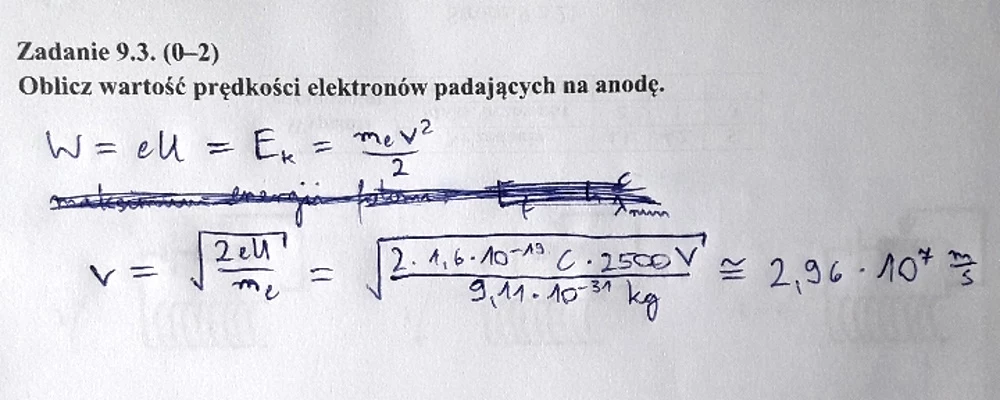 Zadanie 9.3. (0–2)
Oblicz wartość prędkości elektronów padających na anodę.
W = eU = E_k = m_e v² / 2
v = √(2eU / m_e) = √(2 · 1,6 · 10⁻¹⁹ C · 2500 V / 9,11 · 10⁻³¹ kg) ≅ 2,96 · 10⁷ m/s